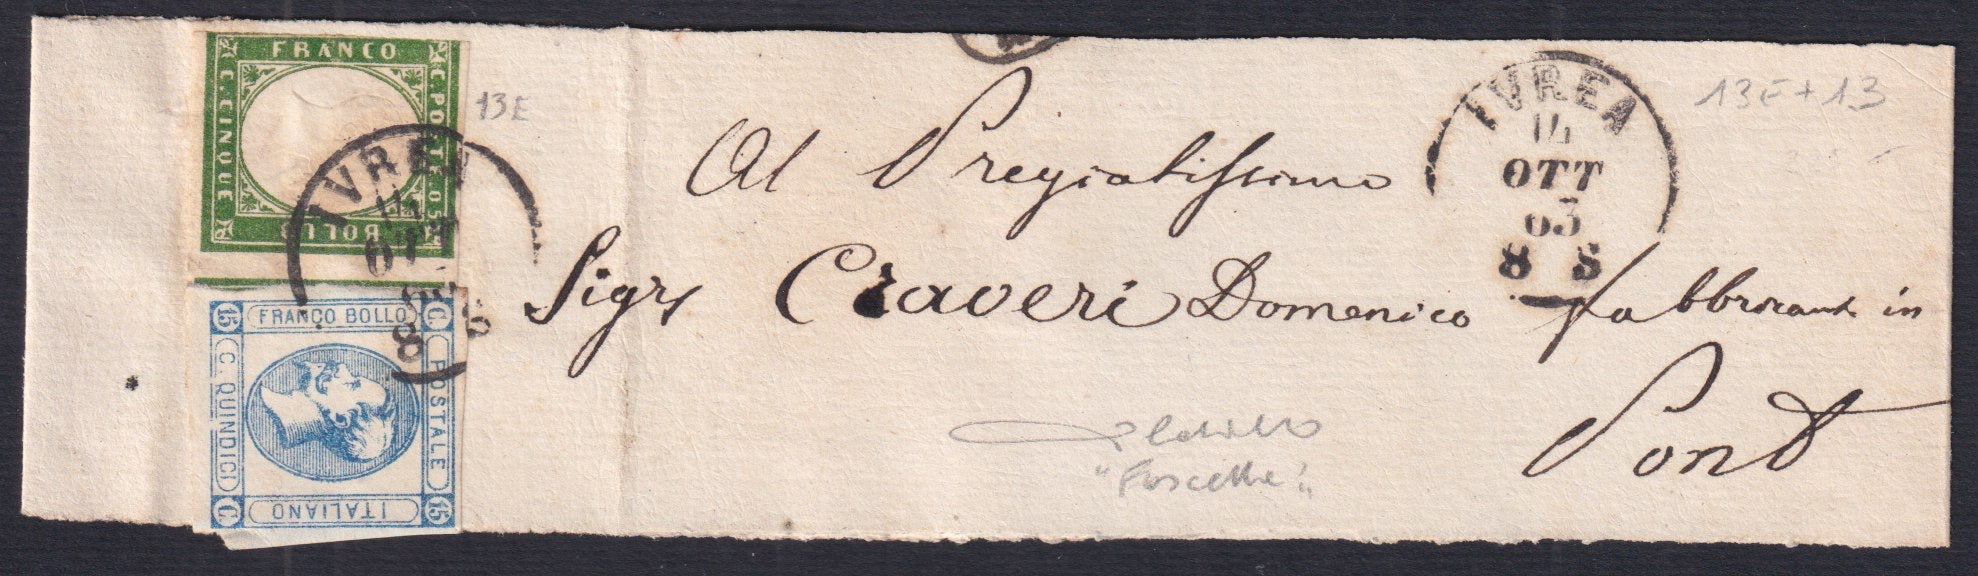 FRANCO
C. POSTA 05
C. CINQUE
BOLLO
13E
IVREA
OTT
63
8 S
15 FRANCO BOLLO C
POSTALE
C. QUINDICI
C ITALIANO 15
IVREA
OTT
63
8 S
13E + 13
Al Pregiatissimo
Sigr Craveri Domenico fabbricante in
Pont